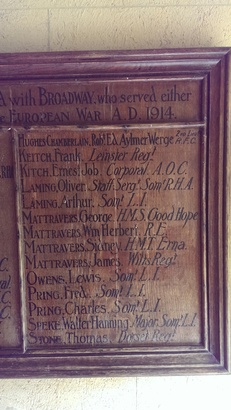 A with BROADWAY, who served either
EUROPEAN WAR A.D. 1914.
HUGHES CHAMBERLAIN, Robt Ed. Aylmer Werge 2nd Lieut R.F.C.
KEITCH, Frank. Leinster Regt
KITCH, Ernest Job. Corporal A.O.C.
LAMING, Oliver. Staff-Sergt Somt R.H.A.
LAMING, Arthur. Somt L.I.
MATTRAVERS, George. H.M.S. Good Hope
MATTRAVERS, Wm Herbert. R.E.
MATTRAVERS, Stanley. H.M.T. Etna.
MATTRAVERS, James. Wilts Regt
OWENS, Lewis. Somt L.I.
PRING, Fred. Somt L.I.
PRING, Charles. Somt L.I.
SPEKE, Walter Hanning. Major. Somt L.I.
STONE, Thomas. Dorset Regt